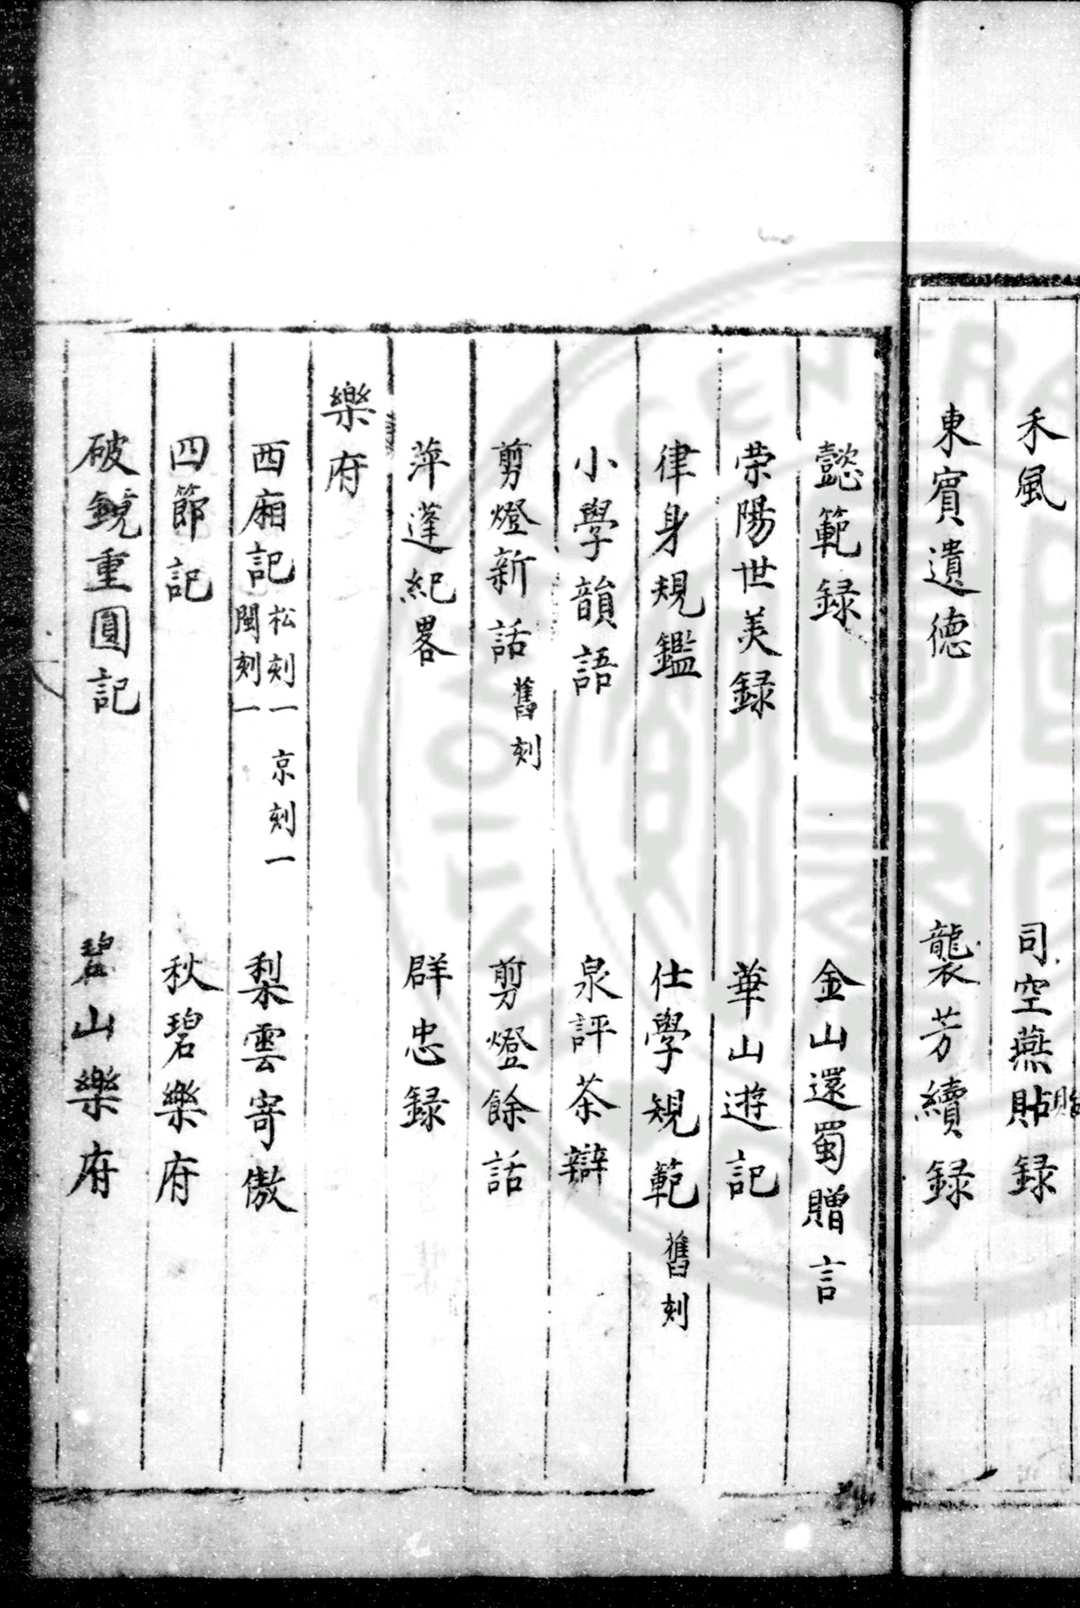 禾風　司空燕貼録
貽
東賓遺德　襲芳續録
懿範録　金山還蜀贈言
荣陽世美録　華山遊記
律身規鑑　仕學規範　舊刻
小學韻語　泉評茶辯
剪燈新話　舊刻　剪燈餘話
萍蓬紀畧　群忠録
樂府
西廂記　松刻一　京刻一　閩刻一　梨雲寄傲
四節記　秋碧樂府
破鏡重圓記　碧山樂府